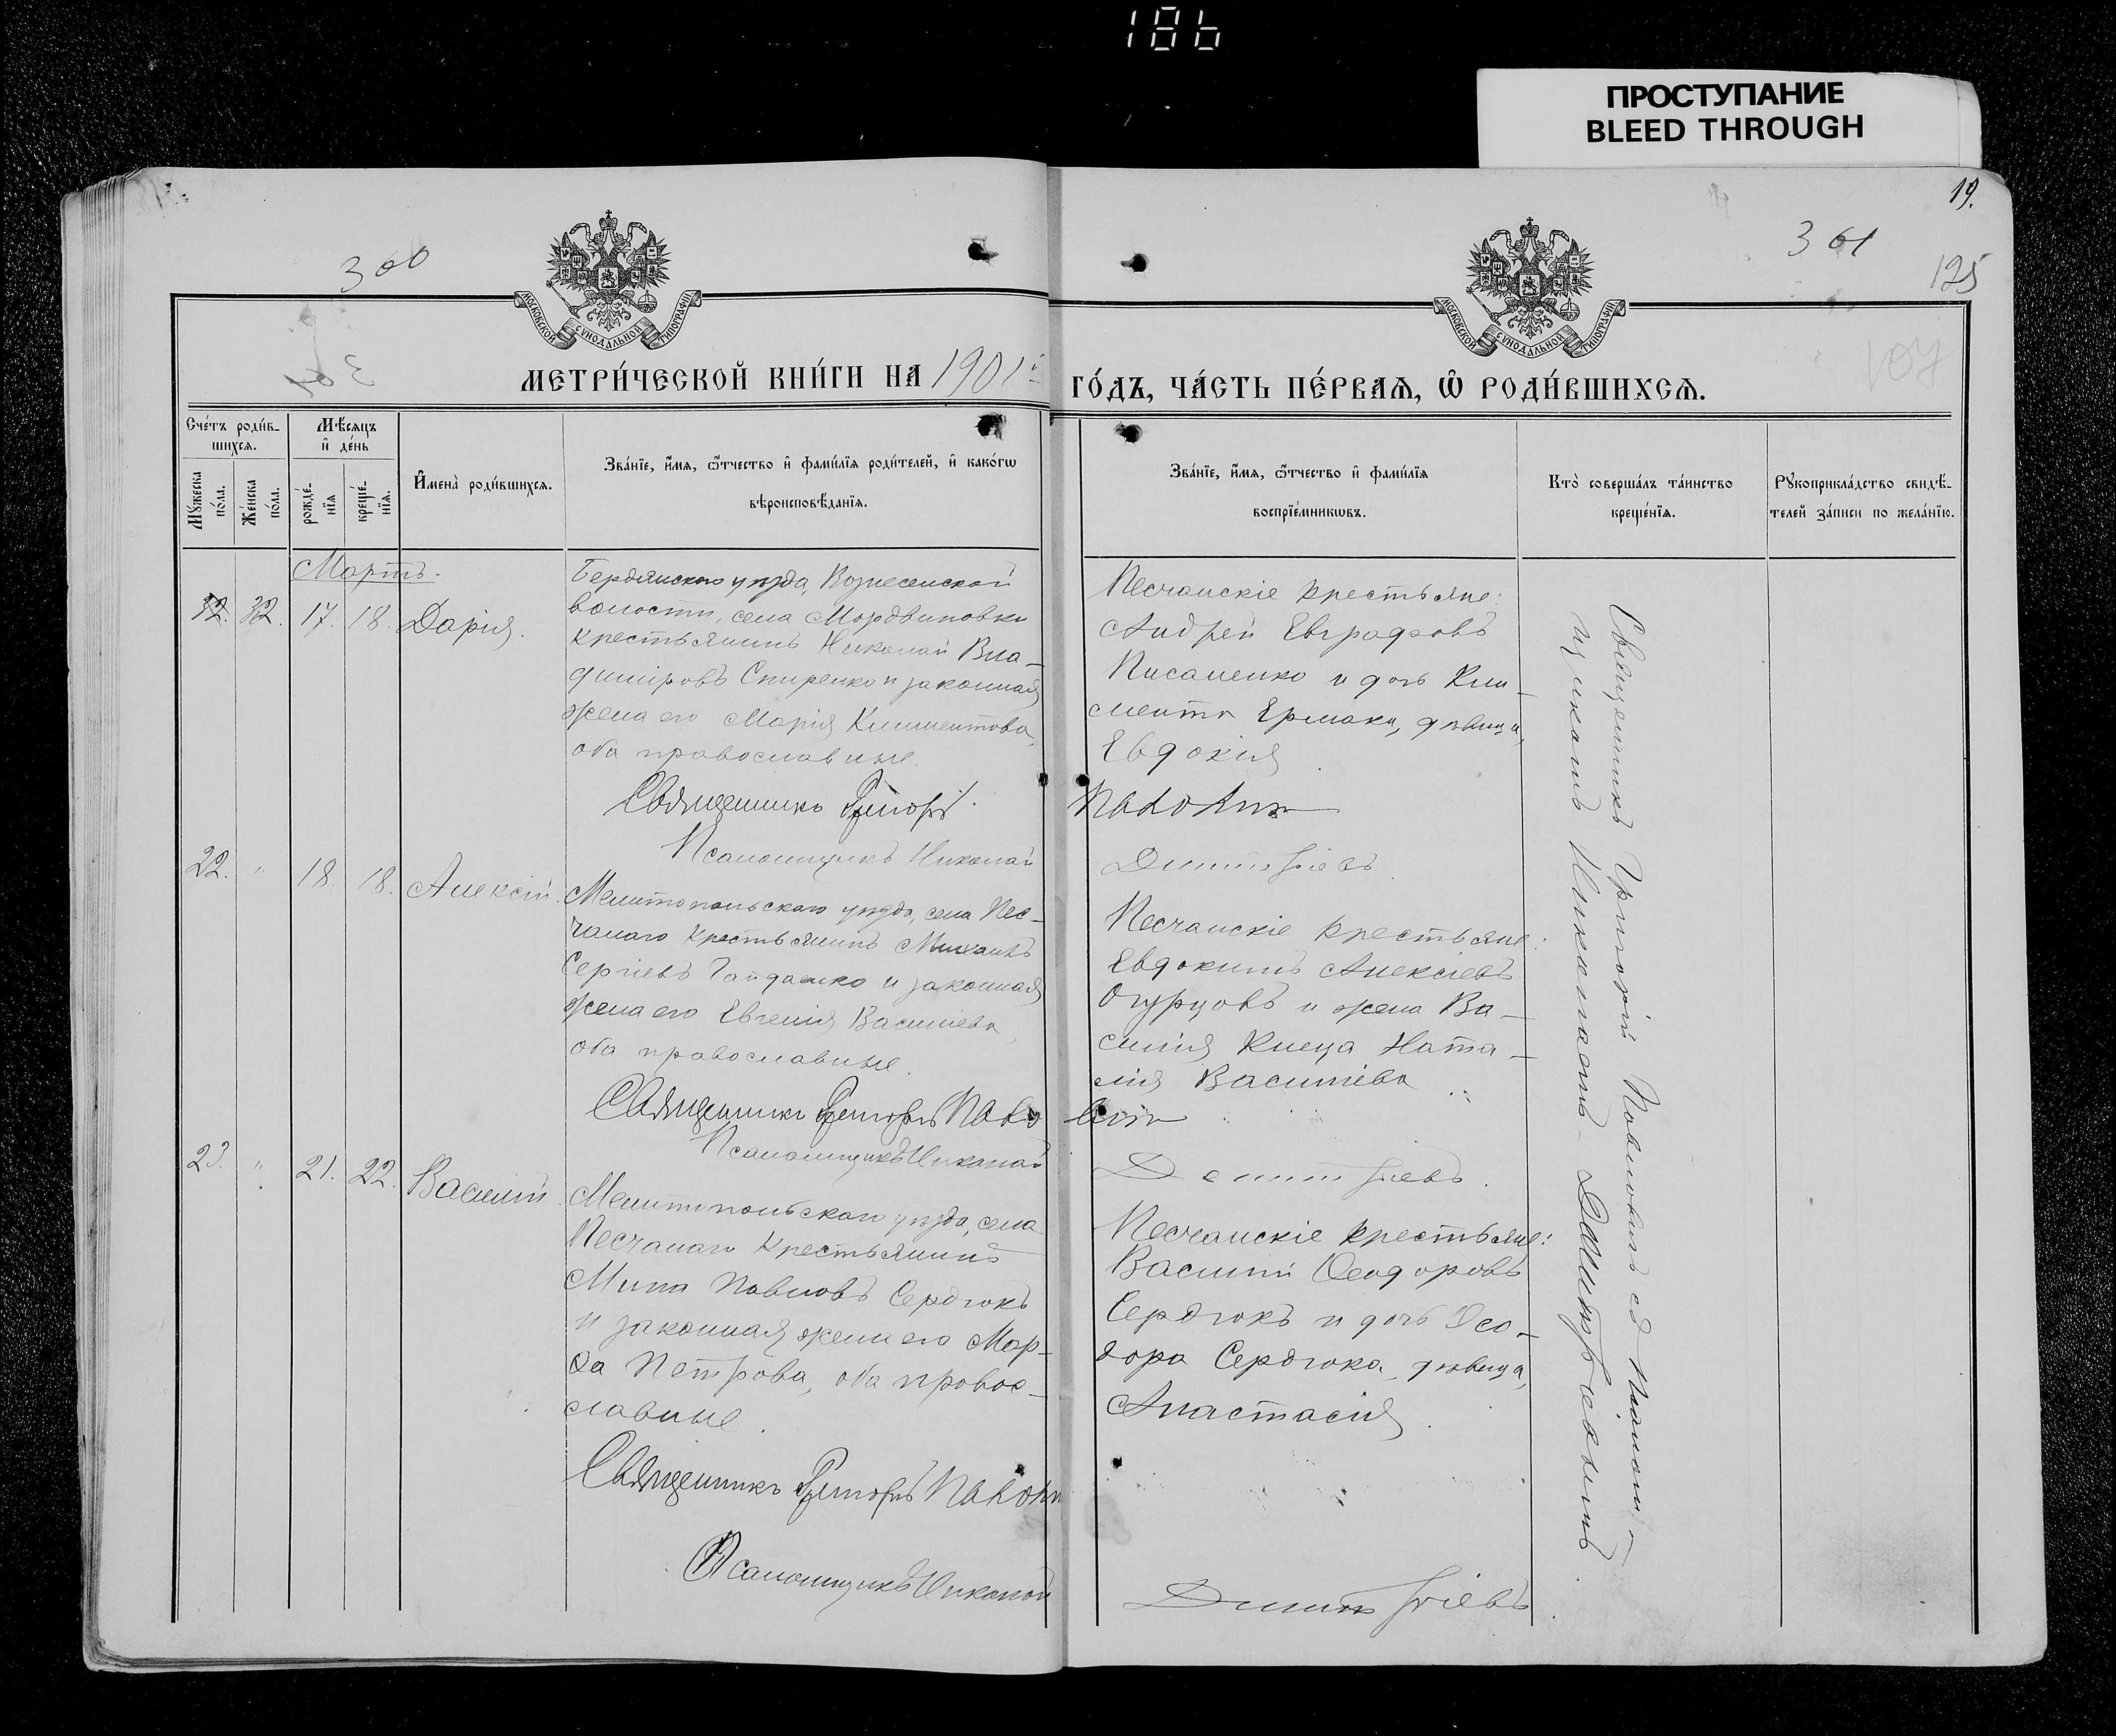 186
ПРОСТУПАНИЕ
BLEED THROUGH
19.
300
301
125
107
МОСКОВСКОЙ СѴНОДАЛЬНОЙ ТИПОГРАФІИ
МОСКОВСКОЙ СѴНОДАЛЬНОЙ ТИПОГРАФІИ
МЕТРИ́ЧЕСКОЙ КНИ́ГИ НА 1901й
ГО́ДЪ, ЧА́СТЬ ПЕ́РВАѦ, Ѡ҆ РОДИ́ВШИХСѦ.
Сче́тъ роди́в-
шихсѧ.
Мꙋжеска по́ла.
Же́нска по́ла.
Мѣ́сяцъ
и҆ де́нь
рожде́-
нїѧ
креще́-
нїѧ.
И҆мена̀ роди́вшихсѧ.
Зва́нїе, и҆́мѧ, ѻ҆́тчество и҆ фами́лїѧ роди́телей, и҆ како́гѡ
вѣроисповѣ́данїѧ.
Зва́нїе, и҆́мѧ, ѻ҆́тчество и҆ фами́лїѧ
воспрїе́мникѡвъ.
Кто̀ соверша́лъ та́инство
креще́нїѧ.
Рꙋкоприкла́дство свидѣ́-
телей за́писи по жела́нїю.
Мартъ.
32. 17. 18. Дарія.
Бердянскаго уѣзда, Вознесенской
волости, села Мордвиновки
крестьянинъ Николай Вла-
диміровъ Спиренко и законная
жена его Марія Климентова,
оба православные.
Священникъ Григорій
Псаломщикъ Николай
Песчанскіе крестьяне:
Андрей Евграфовъ
Писаненко и дочь Кли-
мента Ермака, дѣвица,
Евдокія
Димитріевъ.
22. " 18. 18. Алексій.
Мелитопольскаго уѣзда, села Пес-
чанаго крестьянинъ Михаилъ
Сергіевъ Гайдаенко и законная
жена его Евгенія Василіева
оба православные.
Священникъ Григорій
Псаломщикъ Николай
Песчанскіе крестьяне:
Евдокимъ Алексіевъ
Огурцовъ и жена Ва-
силія Клеца Ната-
лія Василіева
Димитріевъ.
23. " 21. 22. Василій.
Мелитопольскаго уѣзда, села
Песчанаго крестьянинъ
Мина Павловъ Сердюкъ
и законная жена его Мар-
ѳа Петрова, оба правос-
лавные.
Священникъ Григорій
Псаломщикъ Николай
Песчанскіе крестьяне:
Василій Ѳеодоровъ
Сердюкъ и дочь Ѳео-
дора Сердюка, дѣвица,
Анастасія.
Димитріевъ
Священникъ Григорій Павловичъ съ Псалом-
щикомъ Николаемъ Димитріевымъ.